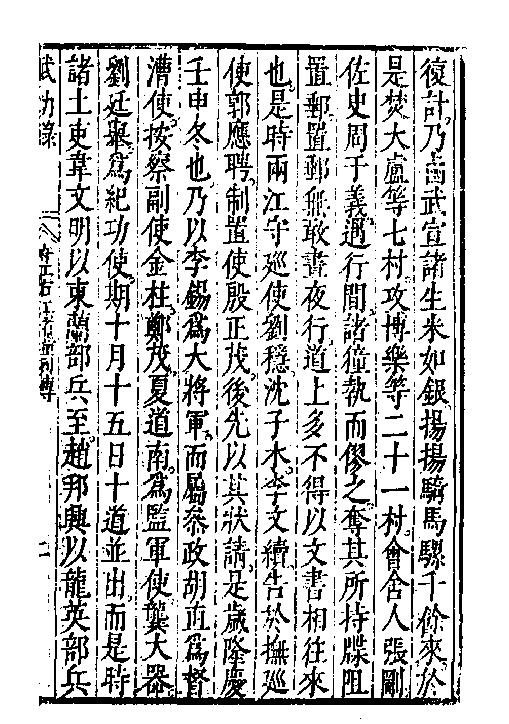 復計乃齒武宣諸生米如銀揚揚騎馬騾千餘來於
是焚大盧等七村攻博樂等二十一村會舍人張剛
佐史周于義遇行間諸獞執而僇之奪其所持牒阻
置郵置郵無敢晝夜行道上多不得以文書相往來
也是時兩江守巡使劉穩沈子木李文續告於撫巡
使郭應聘制置使殷正茂後先以其狀請是歲隆慶
壬申冬也乃以李錫爲大將軍而屬叅政胡直爲督
漕使按察副使金柱鄭茂夏道南爲監軍使龔大器
劉廷舉爲紀功使期十月十五日十道並出而是時
諸土吏韋文明以東蘭部兵至趙邦興以龍英部兵
武功錄
府江右江
二